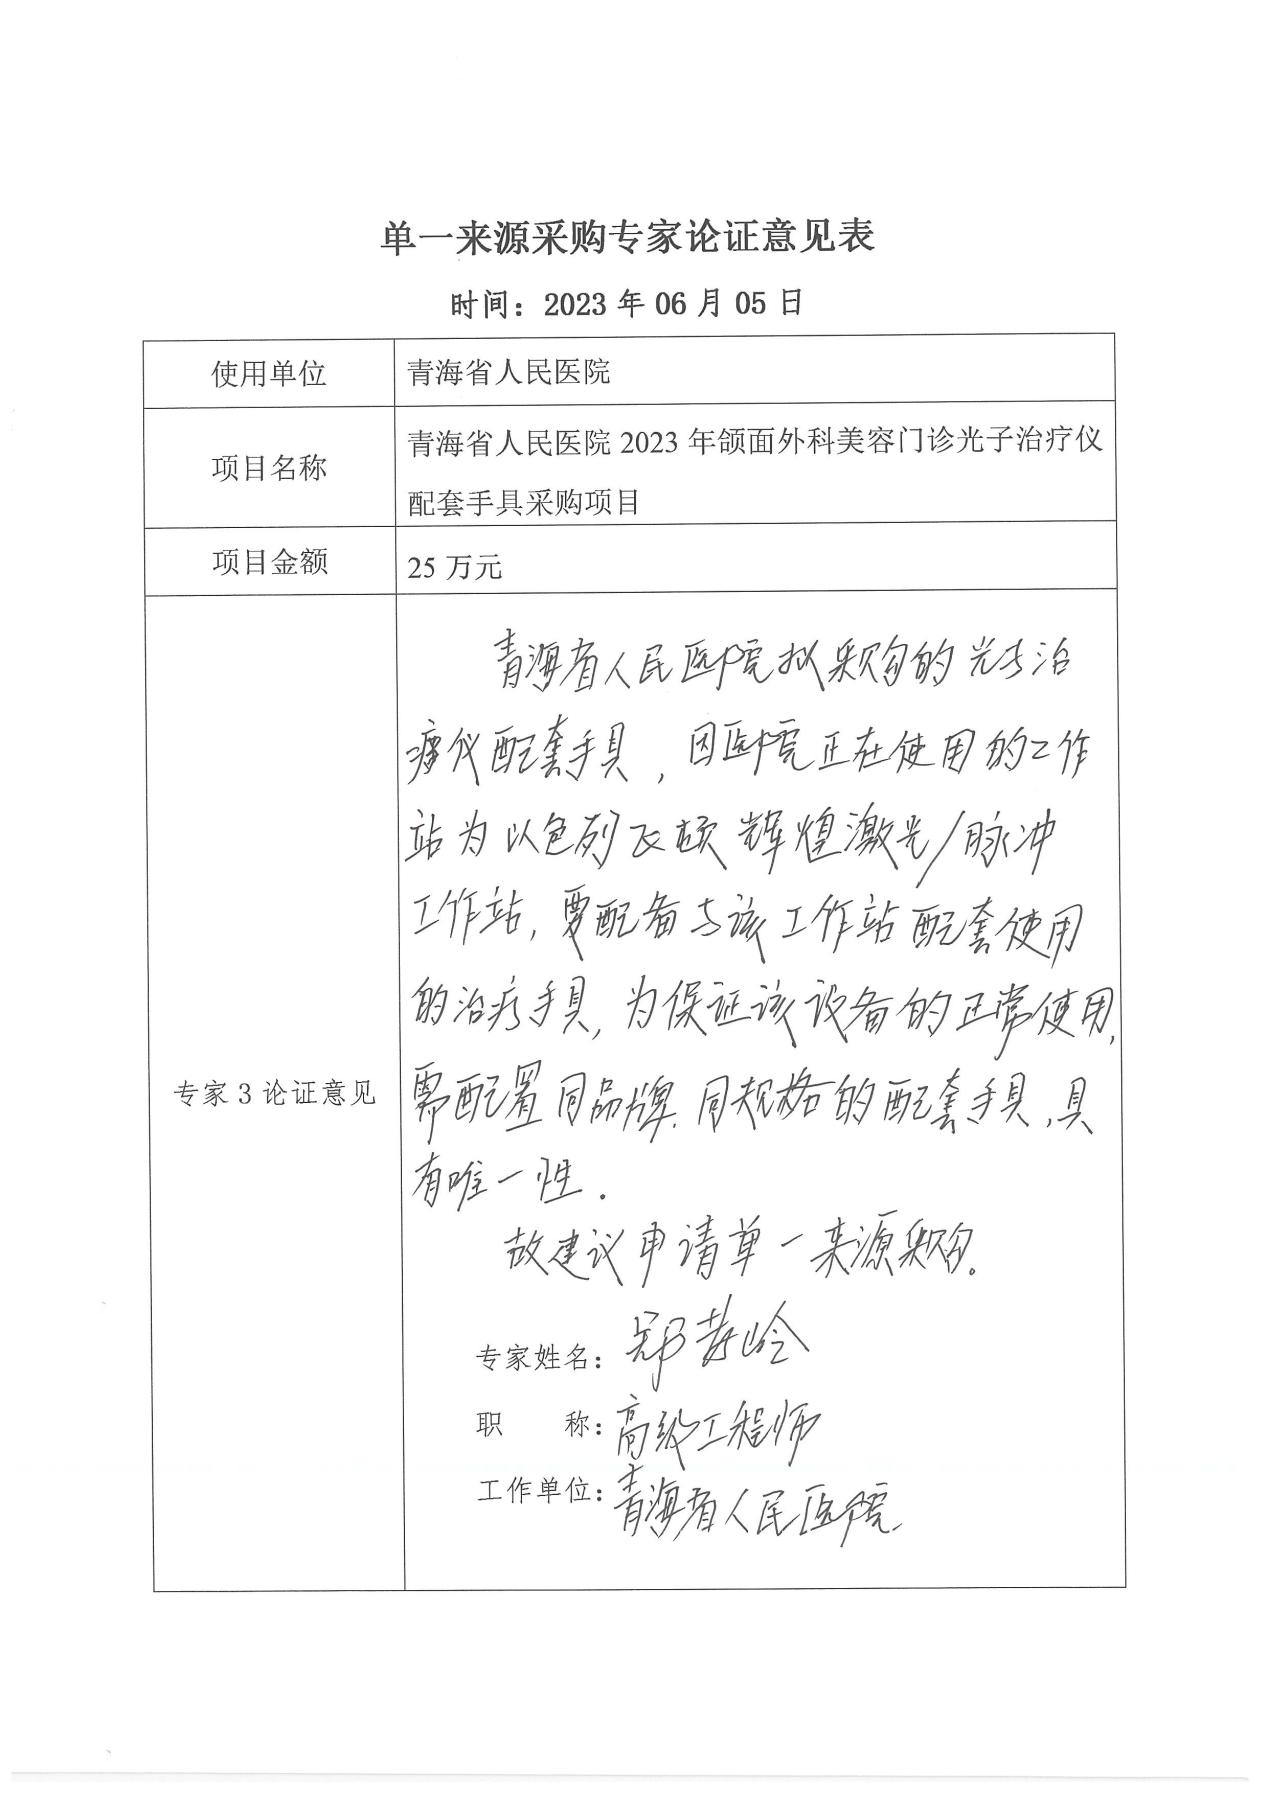 单一来源采购专家论证意见表
时间：2023 年 06 月 05 日
使用单位
青海省人民医院
项目名称
青海省人民医院 2023 年颌面外科美容门诊光子治疗仪
配套手具采购项目
项目金额
25 万元
专家 3 论证意见
青海省人民医院拟采购的光子治
疗仪配套手具，因医院正在使用的工作
站为以色列飞顿辉煌激光/脉冲
工作站，要配备与该工作站配套使用
的治疗手具，为保证该设备的正常使用，
需配置同品牌.同规格的配套手具，具
有唯一性.
故建议申请单一来源采购。
专家姓名：郑
职 称：高级工程师
工作单位：青海省人民医院.